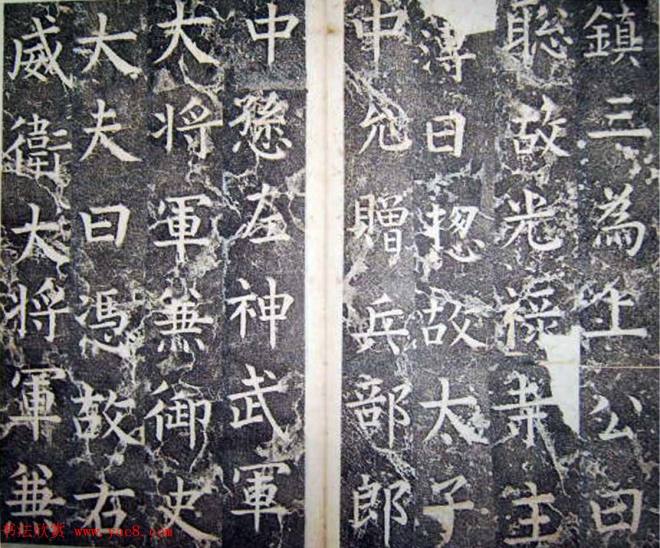 鎮三為上公曰
聡故光禄寺主
薄曰惣故太子
中允贈兵部郎
中愻左神武軍
大将軍兼御史
大夫曰馮故右
威衛大将軍兼
书法欣赏 www.yac8.com